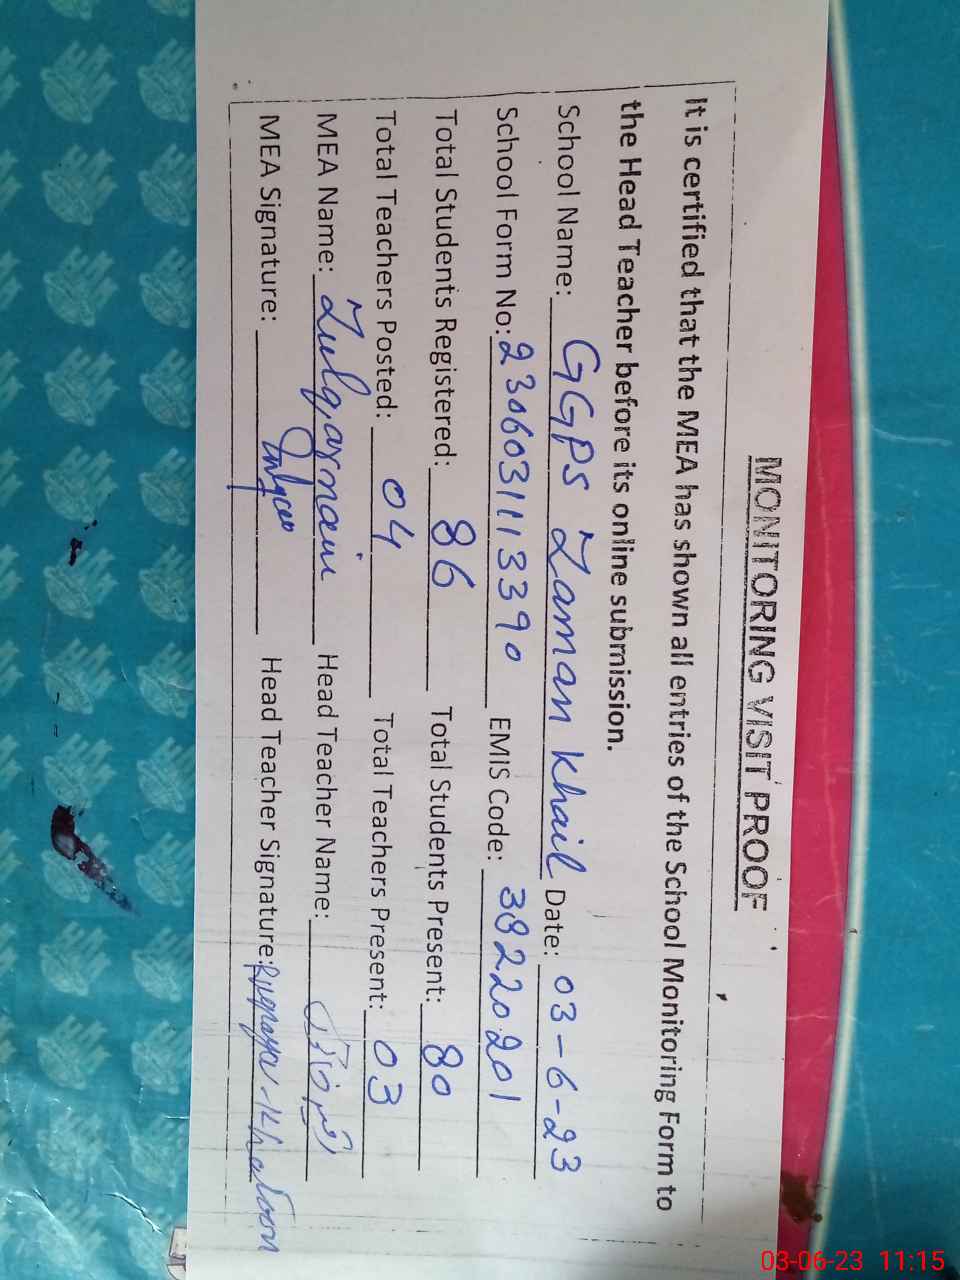 MONITORING VISIT PROOF
It is certified that the MEA has shown all entries of the School Monitoring Form to
the Head Teacher before its online submission.
School Name: GGPS Zaman Khail Date: 03-6-23
School Form No: 2306031113390 EMIS Code: 38220201
Total Students Registered: 86 Total Students Present: 80
Total Teachers Posted: 04 Total Teachers Present: 03
MEA Name: Zulqarnain Head Teacher Name:
MEA Signature: Zulqar Head Teacher Signature: Ruqayya-Khatoon
03-06-23 11:15